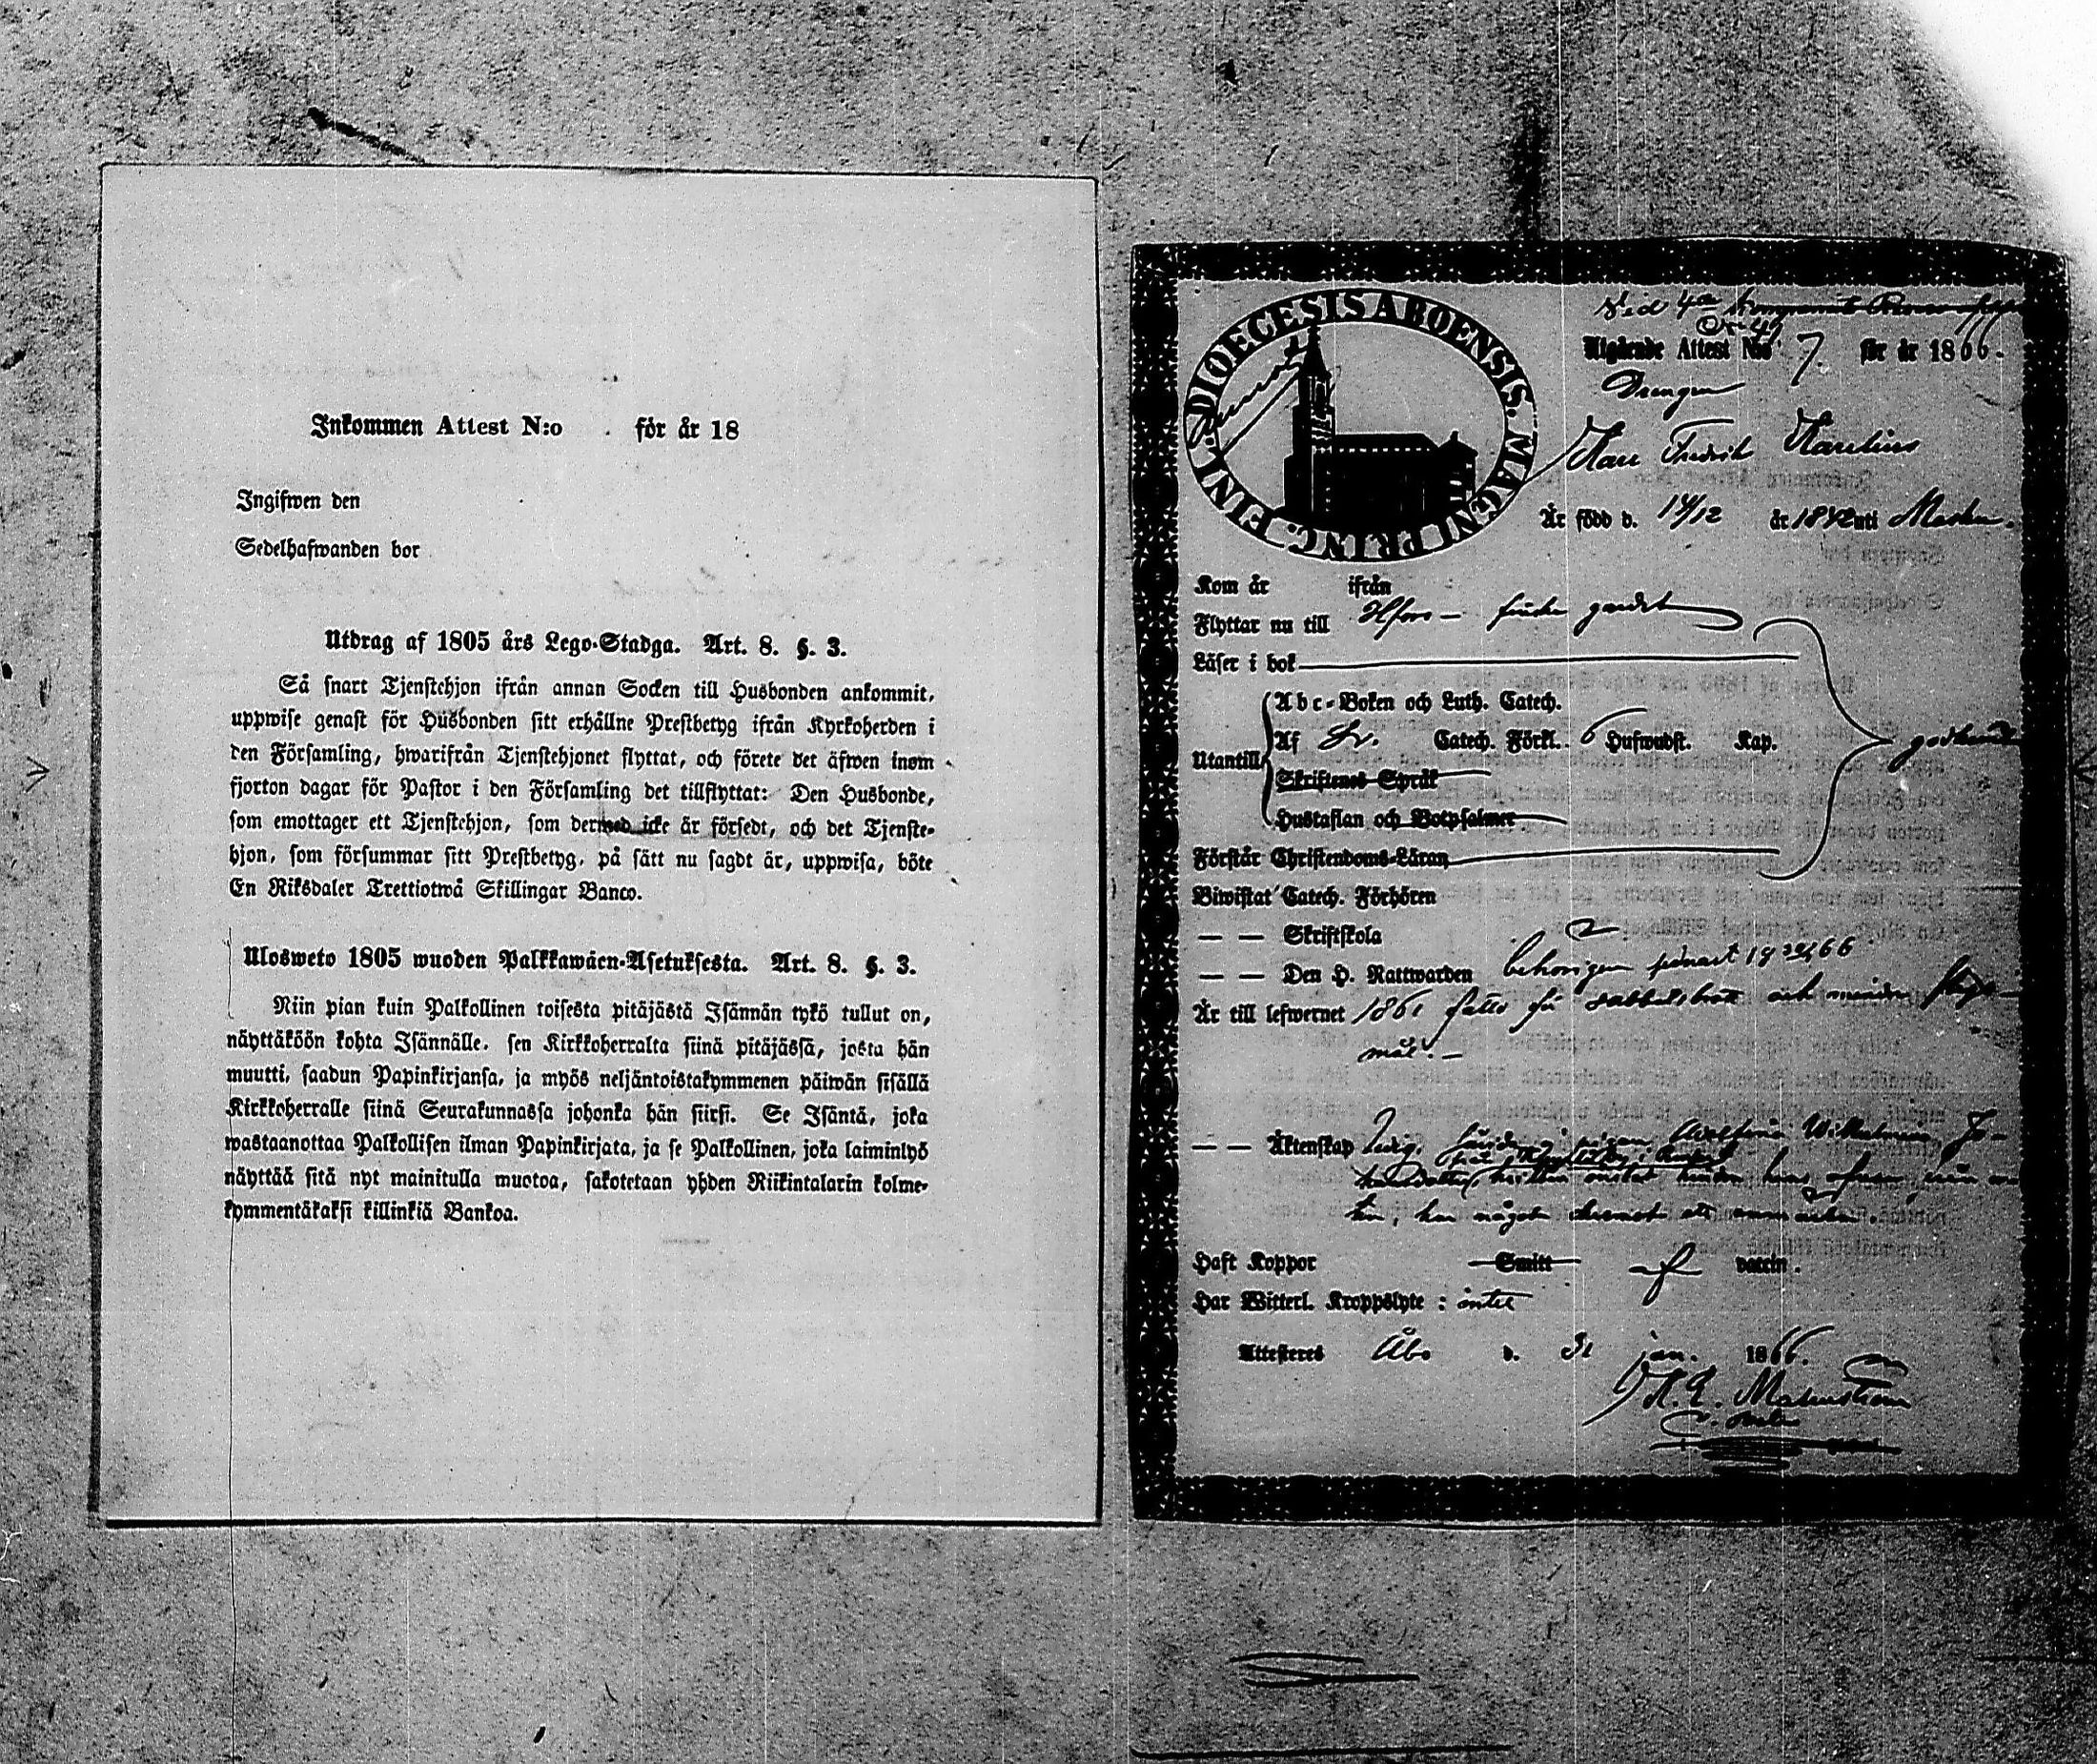 Inkommen Attest N:o . för år 18
Ingifwen den
Sedelhafwanden bor
Utdrag af 1805 års Lego-Stadga. Art. 8. §. 3.
Så snart Tjenstehjon ifrån annan Socken till Husbonden ankommit,
uppwise genast för Husbonden sitt erhållne Prestbetyg ifrån Kyrkoherden i
den Församling, hwarifrån Tjenstehjonet flyttat, och förete det äfwen inom
fjorton dagar för Pastor i den Församling det tillflyttat: Den Husbonde,
som emottager ett Tjenstehjon, som dermed icke är försedt, och det Tjenste-
hjon, som försummar sitt Prestbetyg, på sätt nu sagdt är, uppwisa, böte
En Riksdaler Trettiotwå Skillingar Banco.
Ulosweto 1805 wuoden Palkkawäen-Asetuksesta. Art. 8. §. 3.
Niin pian kuin Palkollinen toisesta pitäjästä Isännän tykö tullut on,
näyttäköön kohta Isännälle, sen Kirkkoherralta siinä pitäjässä, josta hän
muutti, saadun Papinkirjansa, ja myös neljäntoistakymmenen päiwän sisällä
Kirkkoherralle siinä Seurakunnassa johonka hän siirsi. Se Isäntä, joka
wastaanottaa Palkollisen ilman Papinkirjata, ja se Palkollinen, joka laiminlyö
näyttää sitä nyt mainitulla muotoa, sakotetaan yhden Riikintalarin kolme-
kymmentäkaksi killinkiä Bankoa.
DIOECESIS ABOENSIS. MAGNI PRINC. FINL.
Sid 4
Utgående Attest N:o 7. för år 1866.
Drengen
Karl Fredrik
Är född d. 14/12 år 1842 uti Masku.
Kom år ifrån
Flyttar nu till Hfors —
Läser i bok
Abc-Boken och Luth. Catech.
Utantill Af Sv. Catech. Förkl. 6 Hufwudst. Kap.
Skriftenes Språk
Hustaflan och Botpsalmer
Förstår Christendoms-Läran
Biwistat Catech. Förhören
— — Skriftskola
— — Den H. Nattwarden behörigen senast 18 66
Är till lefwernet 1861 fälld för sabbatsbrott och
mål. —
— — Äktenskap ledig.
Haft Koppor Smitt vaccin.
Har Witterl. Kroppslyte: intet
Attesteres Åbo d. 31 jan. 1866.